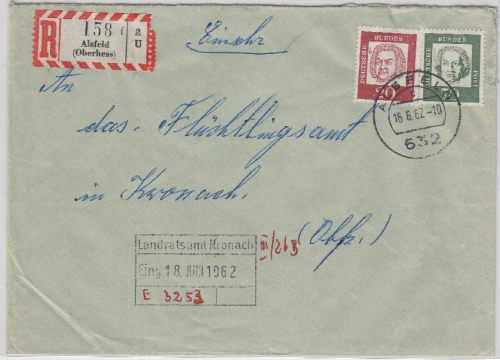 R 158 a
Alsfeld U
(Oberhess)
Einschr
DEUTSCHE BUNDESPOST
20
DEUTSCHE BUNDESPOST
ALSFELD
16.6.62-10
632
An
das Flüchtlingsamt
in Kronach.
(Obfr.)
Landratsamt Kronach
Eing. 18. JUNI 1962
III/263
E 3253